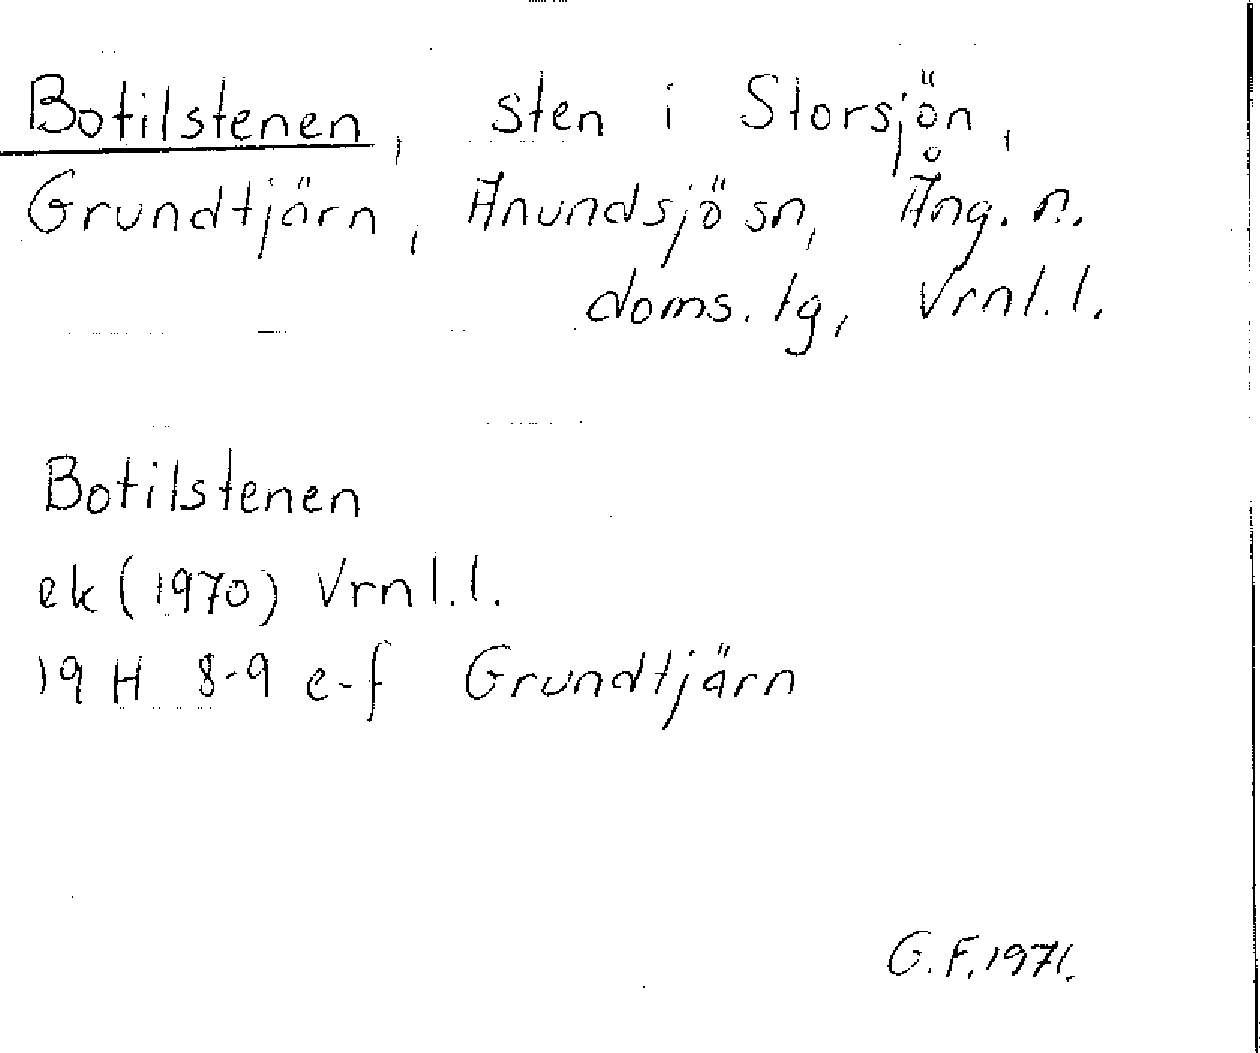 Botilstenen, sten i Storsjön,
Grundtjärn, Anundsjö sn, Ång. n.
doms. tg, Vrnl. l.
Botilstenen
ek (1970) Vrnl. l.
19 H 8-9 e-f Grundtjärn
G. F. 1971.